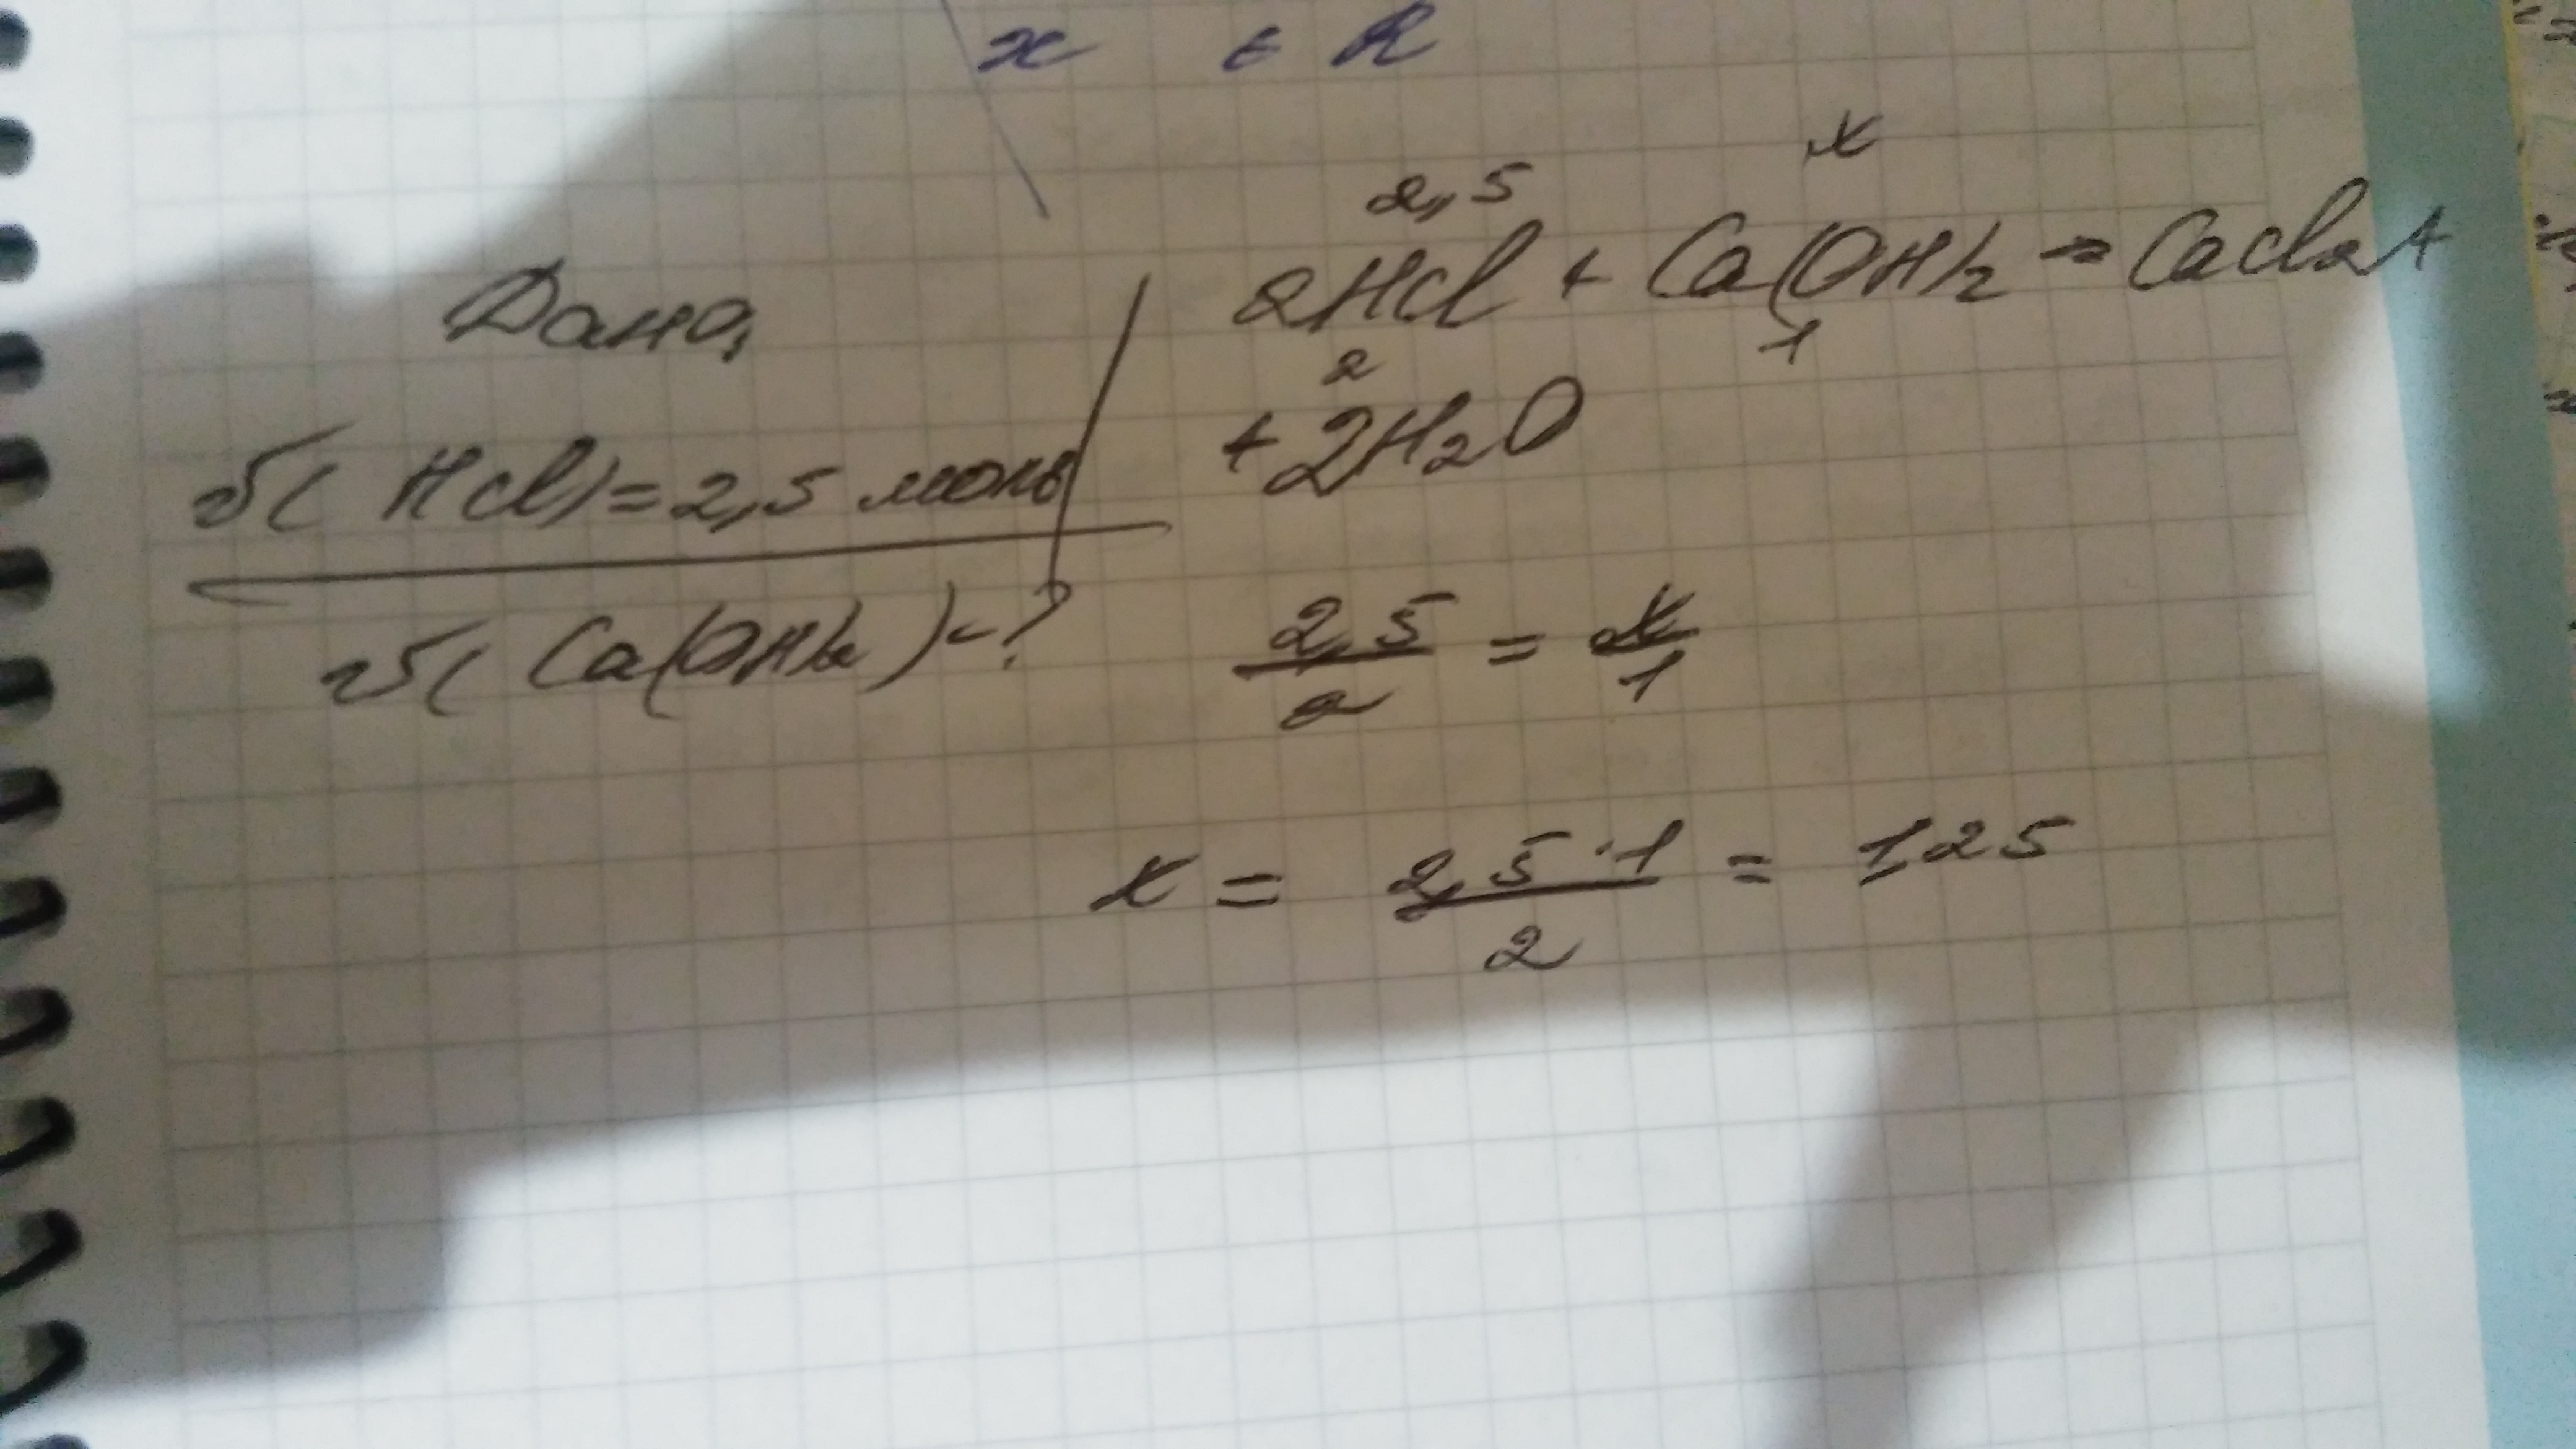 x ∈ R
Дано,
ν( HCl)=2,5 моль
ν( Ca(OH)2 )-?
2,5 x
2HCl + Ca(OH)2 → CaCl2 +
2 1
+ 2H2O
2,5/2 = x/1
x = 2,5·1/2 = 1,25